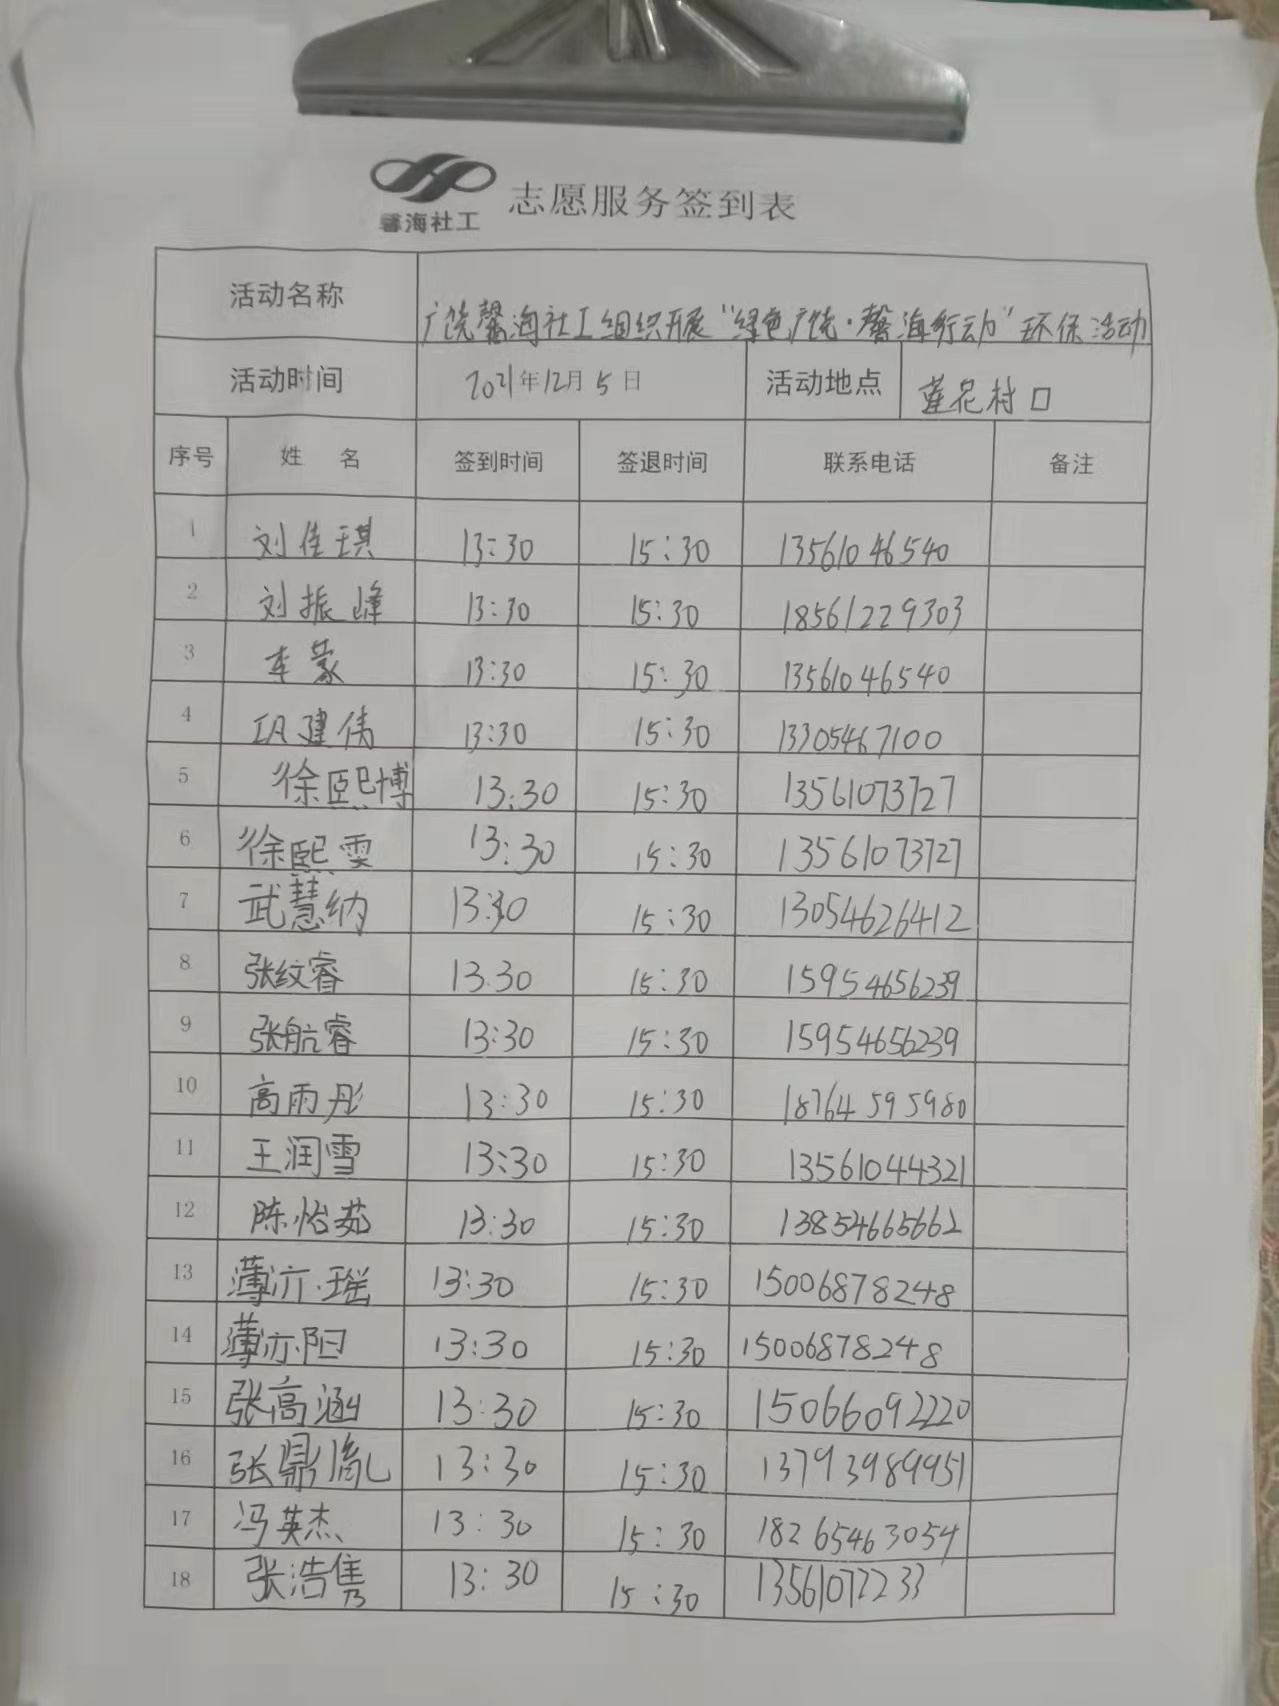 馨海社工 志愿服务签到表
活动名称 广饶馨海社工组织开展"绿色广饶·馨海行动"环保活动
活动时间 2021年12月5日 活动地点 莲花村口
序号 姓 名 签到时间 签退时间 联系电话 备注
1 刘佳琪 13:30 15:30 13561046540
2 刘振峰 13:30 15:30 18561229303
3 车蒙 13:30 15:30 13561046540
4 巩建伟 13:30 15:30 13305467100
5 徐熙博 13:30 15:30 13561073727
6 徐熙雯 13:30 15:30 13561073727
7 武慧纳 13:30 15:30 13054626412
8 张纹睿 13.30 15:30 15954656239
9 张航睿 13:30 15:30 15954656239
10 高雨彤 13:30 15:30 18764595980
11 王润雪 13:30 15:30 13561044321
12 陈怡茹 13:30 15:30 13854665662
13 薄亦瑶 13:30 15:30 15006878248
14 薄亦阳 13:30 15:30 15006878248
15 张高涵 13:30 15:30 15066092220
16 张鼎胤 13:30 15:30 13793989951
17 冯英杰 13:30 15:30 18265463054
18 张浩隽 13:30 15:30 13561072233